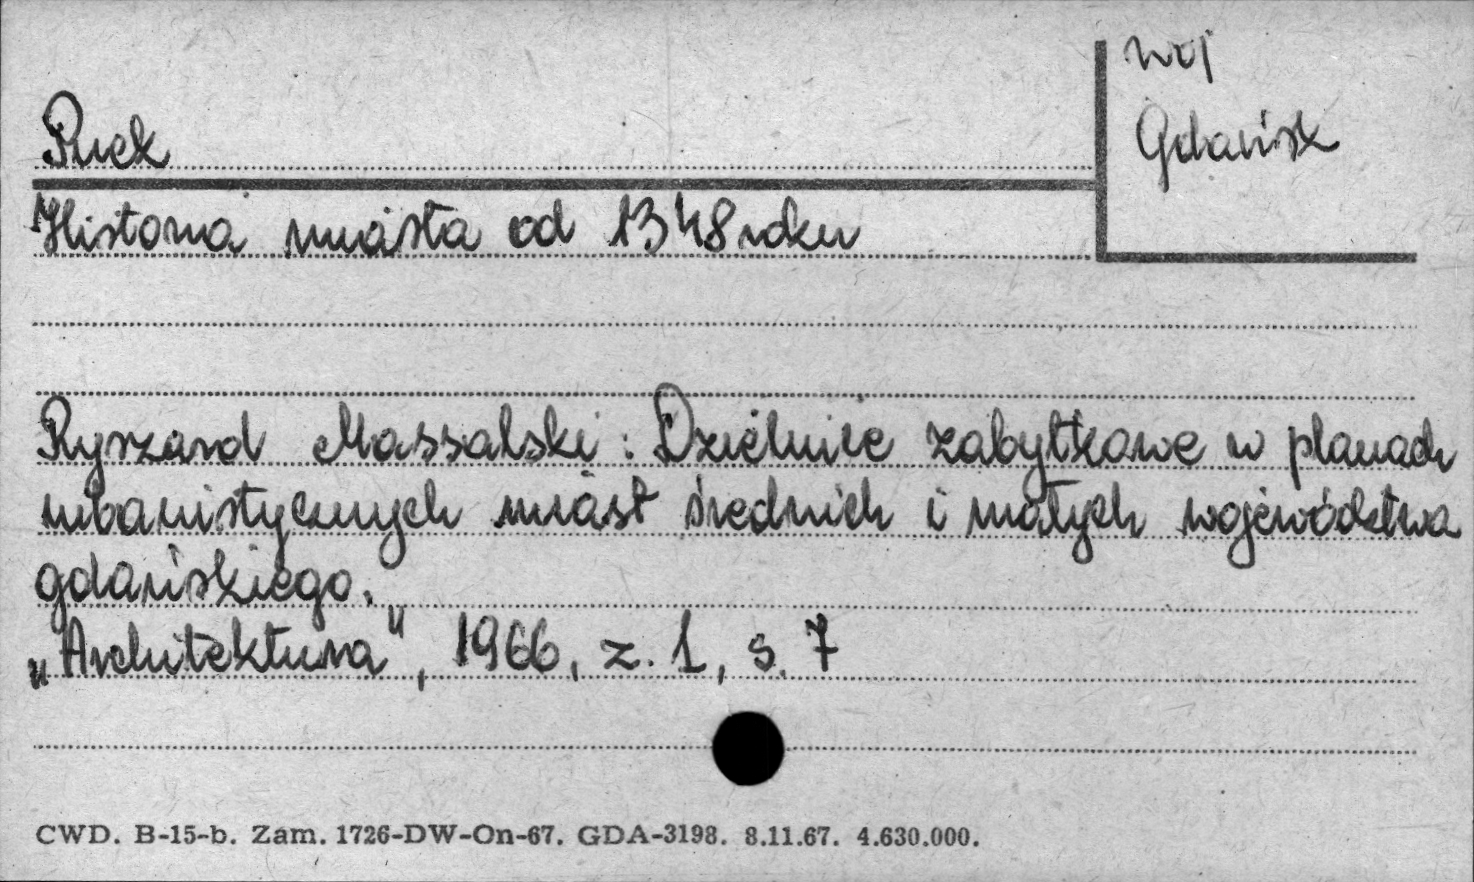 woj
Gdańsk
Puck
Historia miasta od 1348 roku
Ryszard Massalski : Dzielnice zabytkowe w planach
urbanistycznych miast średnich i małych województwa
gdańskiego.
„Architektura", 1966, z. 1, s. 7
CWD. B-15-b. Zam. 1726-DW-On-67. GDA-3198. 8.11.67. 4.630.000.